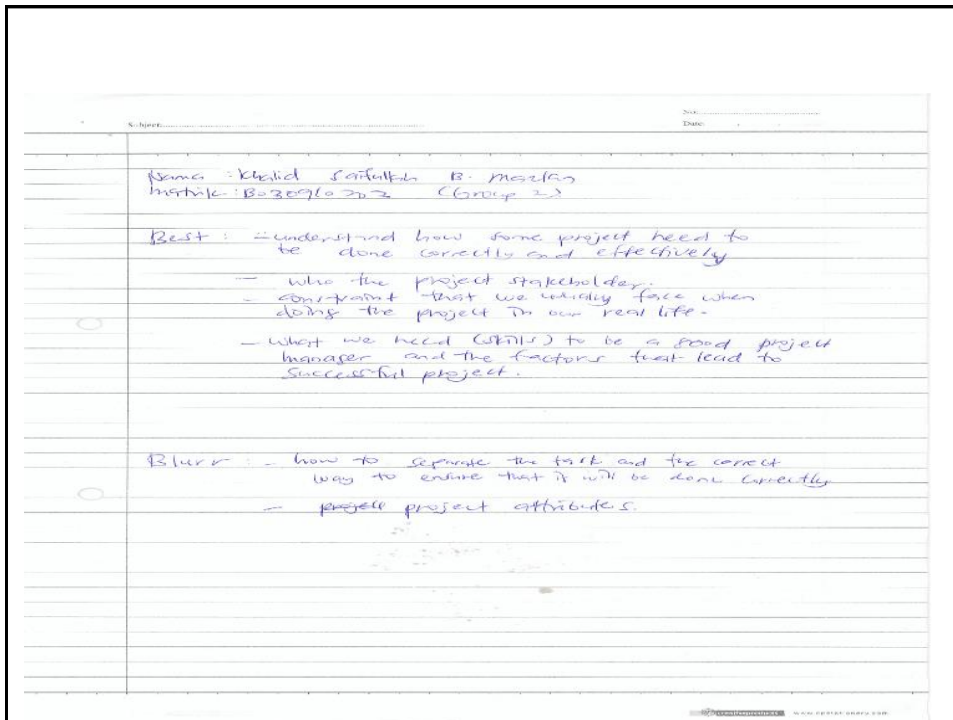 Subject:
No:
Date:
Nama : Khalid Saifullah B. Mazlan
Matrik : B030910202 (Group 2)
Best : - understand how some project need to
be done correctly and effectively
- who the project stakeholder.
- constraint that we usually face when
doing the project in our real life.
- what we need (skills) to be a good project
manager and the factors that lead to
successful project.
Blurr : - how to separate the task and the correct
way to ensure that it will be done correctly
- project attributes.